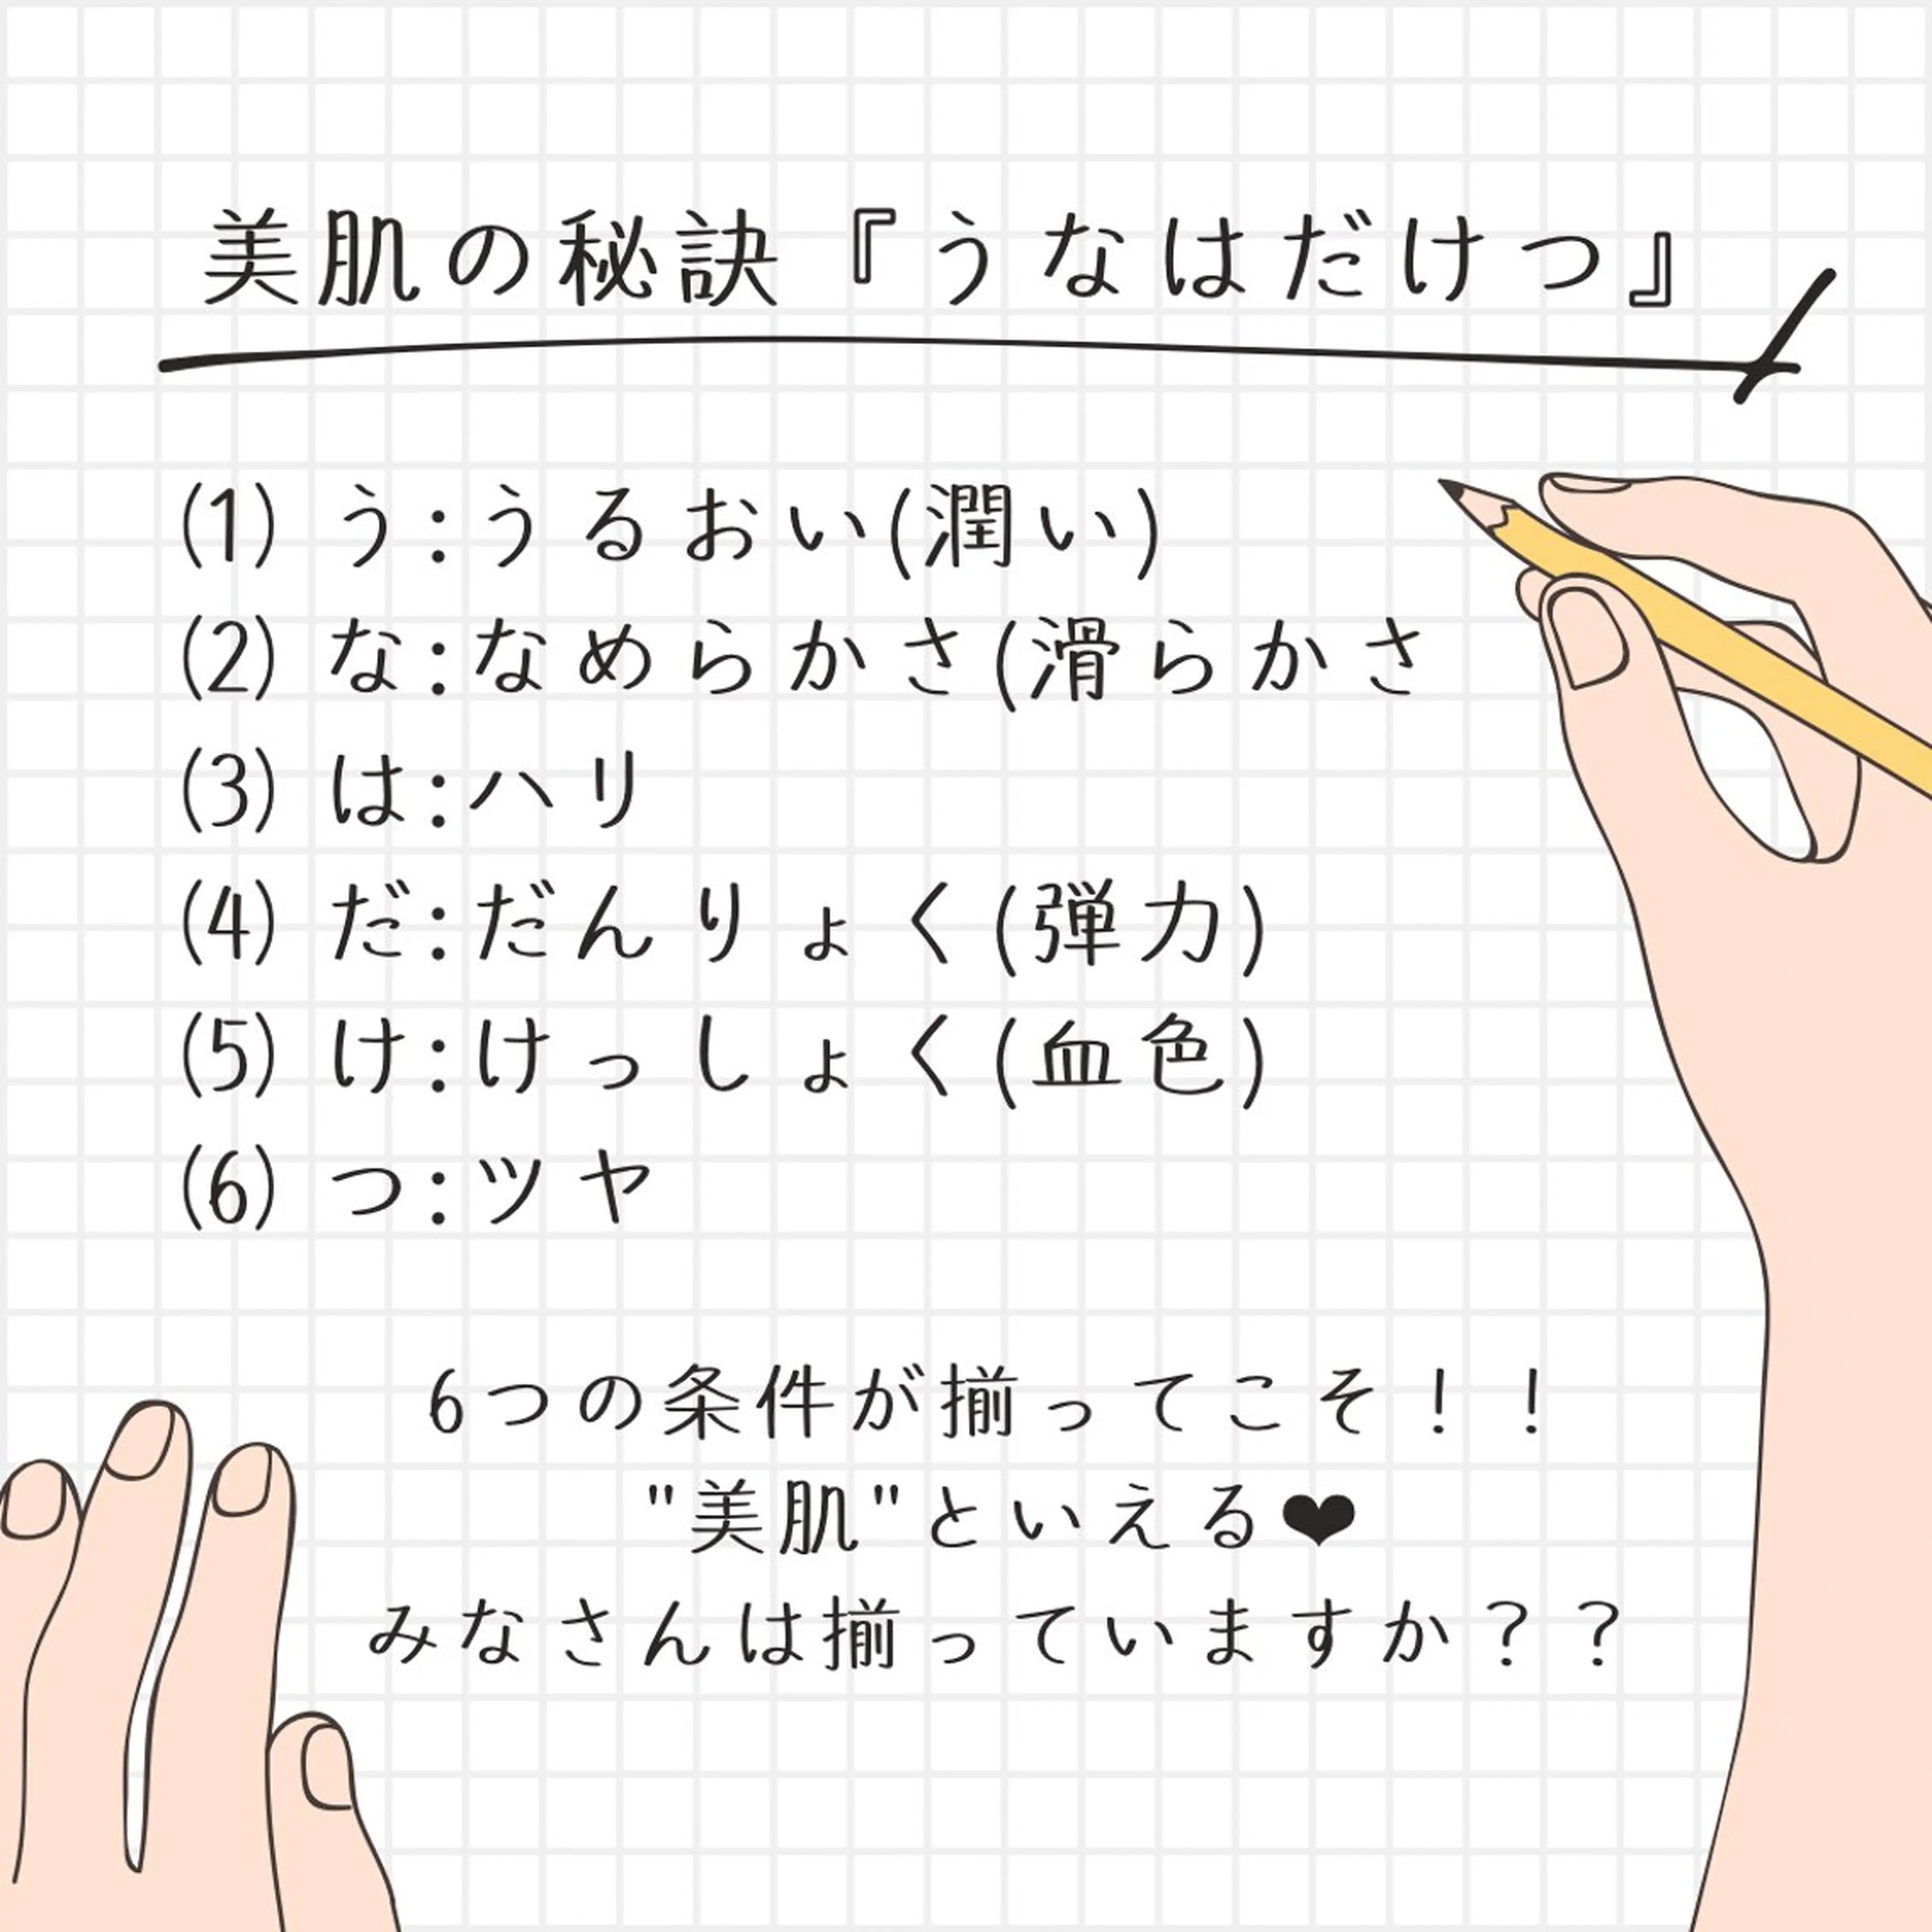 美肌の秘訣『うなはだけつ』
(1) う:うるおい(潤い)
(2) な:なめらかさ(滑らかさ
(3) は:ハリ
(4) だ:だんりょく(弾力)
(5) け:けっしょく(血色)
(6) つ:ツヤ
6つの条件が揃ってこそ！！
"美肌"といえる❤
みなさんは揃っていますか？？